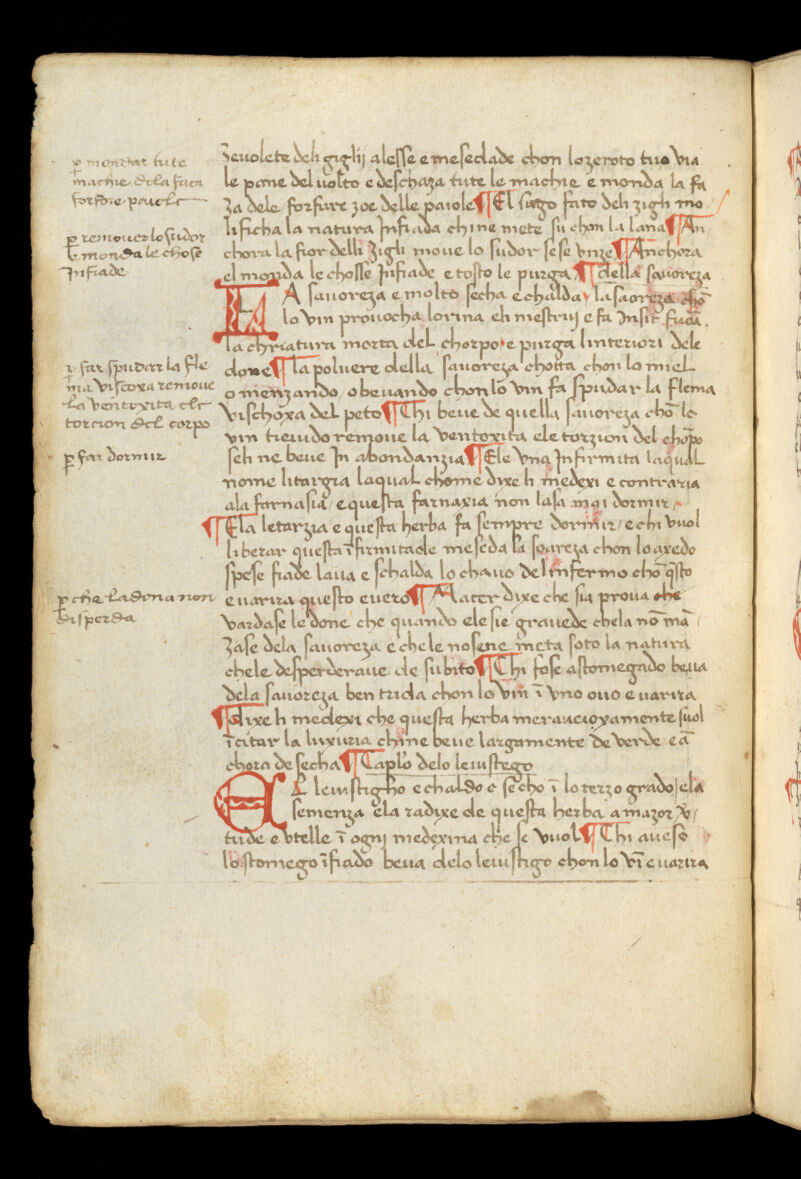 zeuolete deli giglij alesse e mesedade chon lo zeroto tuo via
le pane del uolto e deschaza tute le machie e monda la fa
za dele forfure zoe delle paiole ¶ El sugo fato deli zigli mo
lificha la natura infiada chi ne mete su chon la lana ¶ An
chora la fior delli zigli moue lo sudor se se unze ¶ Anchora
el monda le chosse infiade e tosto le purga ¶ della sauoreza
LA sauoreza e molto secha e chalda la saoreza chō
lo vin prouocha lorina eli mestrui e fa insir fuora
la chriatura morta del chorpo e purga linteriori dele
done ¶ la poluere della sauoreza chotta chon lo miel
o menzando o beuando chon lo vin fa spudar la flema
vischoxa del peto ¶ Chi beue de quella sauoreza chō lo
vin tieuido remoue la ventoxita ele torzion del chorpo
seli ne beue in abondanzia ¶ Ele una infirmita laqual
nome litargia laqual chome dixe li medexi e contraria
ala farnasia e questa farnaxia non lasa mai dormir
¶ Ela letarzia e questa herba fa sempre dormir e chi vuol
liberar questa īfirmitade meseda la soareza chon lo axedo
spese fiade laua e schalda lo chauo del infermo chō q̄sto
e uarira questo e uero ¶ Mater dixe che sia proua che
vardase le done che quando ele sie grauede chela nō mā
zase dela sauoreza e che le no sene meta soto la natura
chele desperderaue de subito ¶ Chi fose astomegado beua
dela sauoreza ben trida chon lo vin ī uno ouo e uarira
¶ dixe li medexi che questa herba meraueioxamente suol
īcitar la luxuria chi ne beue largamente de verde e ā
chora de secha ¶ Capl'o delo leuistego
EL leuistigho e chaldo e secho ī lo terzo grado ela
semenza ela radixe de questa herba a mazor v̄
tude e utelle ī ogni medexina che se vuol ¶ Chi aueso
lo stomego īfiado beua delo leuistigo chon lo vī e uarira
ꝑ mondar tute
machie dela faca
forfore pauele
ꝑ remouer lo sudor
monda le chose
Infiade
ꝑ far spudar la fle
ma viscoxa remoue
la ventoxita ele
torcion del corpo
ꝑ far dormir
ꝑ che la dona non
disperda